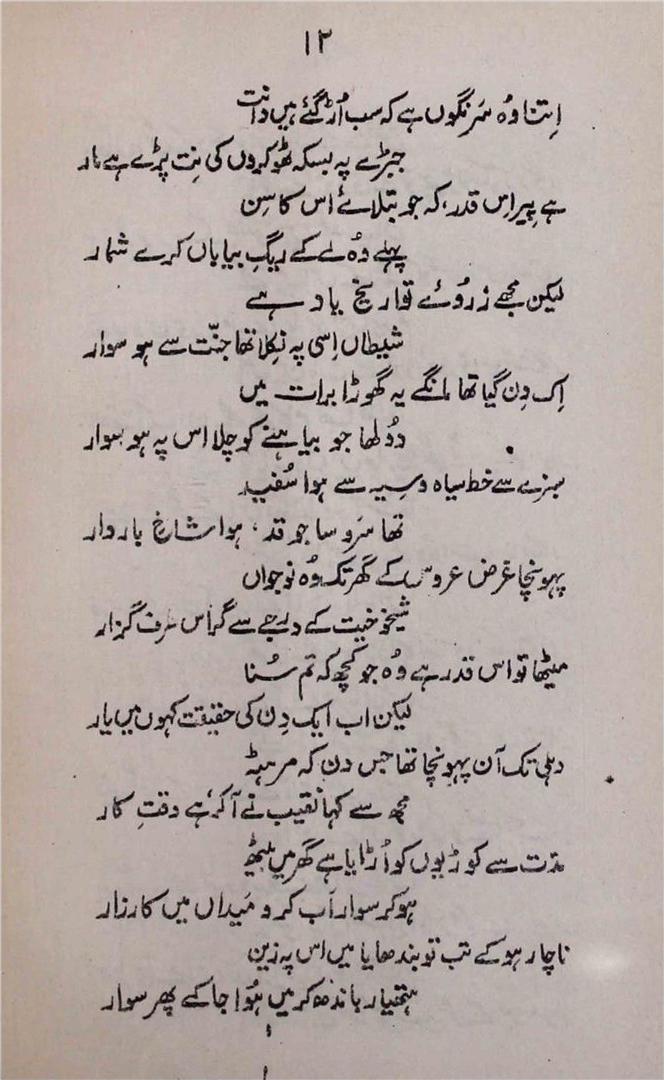 ۱۲
اِتنا وُہ سَرنگوں ہے کہ سب اُڑ گئے ہیں دانت
جبڑے پہ بسکہ ٹھوکروں کی نِت پڑے ہے مار
ہے پیر اِس قدر، کہ جو بتلائے اس کا سِن
پہلے وُہ لے کے ریگِ بیاباں کرے شمار
لیکن مجھے زرُوئے تواریخ یاد ہے
شیطاں اِسی پہ نِکلا تھا جنّت سے ہو سوار
اِک دِن گیا تھا مانگے یہ گھوڑا برات میں
دُولھا جو بیاہنے کو چلا اس پہ ہو سوار
سبزے سے خط سیاہ و سیہ سے ہوا سُفید
تھا سَرو سا جو قد، ہوا شاخِ باردار
پہونچا غرض عروس کے گھر تک وُہ نوجواں
شیخوخیت کے درجے سے کر اس طرف گزار
میٹھا تو اس قدر ہے وُہ جو کچھ کہ تم سُنا
لیکن اب ایک دِن کی حقیقت کہوں میں یار
دہلی تک آن پہونچا تھا جس دن کہ مرہٹہ
مجھ سے کہا نقیب نے آ کر ہے وقتِ کار
مدّت سے کوڑیوں کو اُڑایا ہے گھر میں بیٹھ
ہو کر سوار اَب کرو مَیداں میں کارزار
ناچار ہو کے تب تو بندھایا میں اس پہ زین
ہتھیار باندھ کر میں ہُوا جا کے پھر سوار